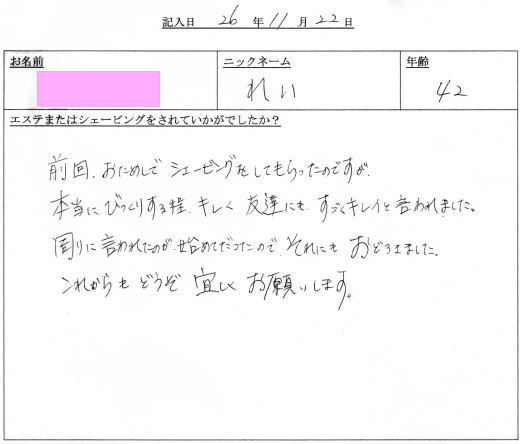 記入日 26 年 11 月 22 日
お名前 ニックネーム 年齢
れい 42
エステまたはシェービングをされていかがでしたか？
前回、おためしで シェービングをしてもらったのですが、
本当に、びっくりする程、キレイく 友達にも、すごくキレイと言われました。
周りに言われたのが、始めてだったので、それにも おどろきました。
これからも どうぞ 宜しく お願いします。